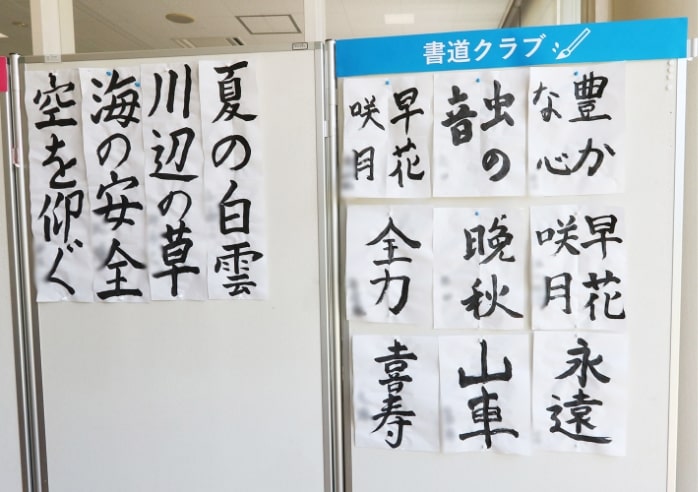 書道クラブ
夏の白雲
川辺の草
海の安全
空を仰ぐ
豊か
な心
虫の
音
早花
咲月
早花
咲月
晩秋
全力
永遠
山車
喜寿